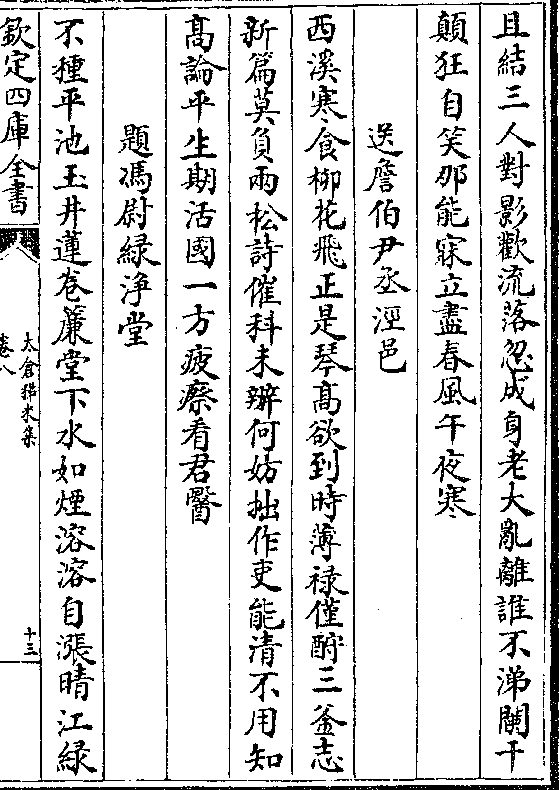 且結三人對影歡流落忽成身老大亂離誰不涕闌干
顛狂自笑那能寐立盡春風午夜寒
送詹伯尹丞涇邑
西溪寒食柳花飛正是琴高欲到時薄祿僅酧三釜志
新篇莫負兩松詩催科未辦何妨拙作吏能清不用知
高論平生期活國一方疲瘵看君醫
題馮尉綠淨堂
不種平池玉井蓮卷簾堂下水如煙溶溶自漲晴江綠
欽定四庫全書
太倉稊米集
卷八
十三